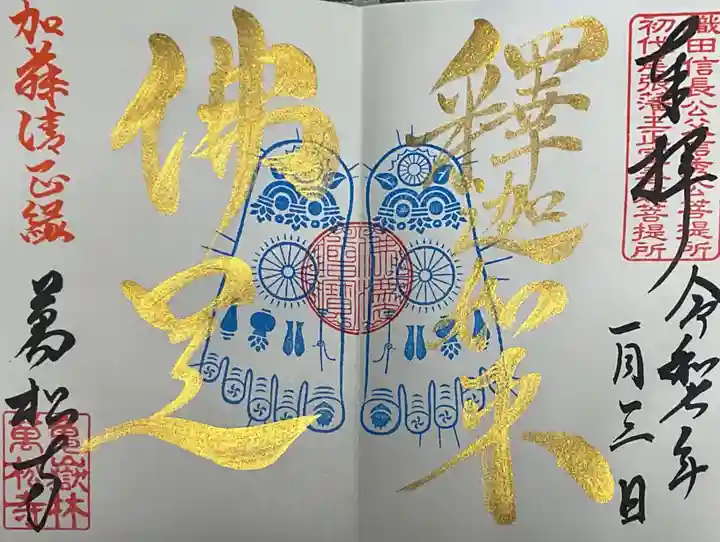 奉拝
令和七年
一月三日
織田信長公父信秀公菩提所
初代尾張藩主正室菩提所
釋迦如来
佛足
加藤清正縁
萬松寺
亀嶽林
萬松寺